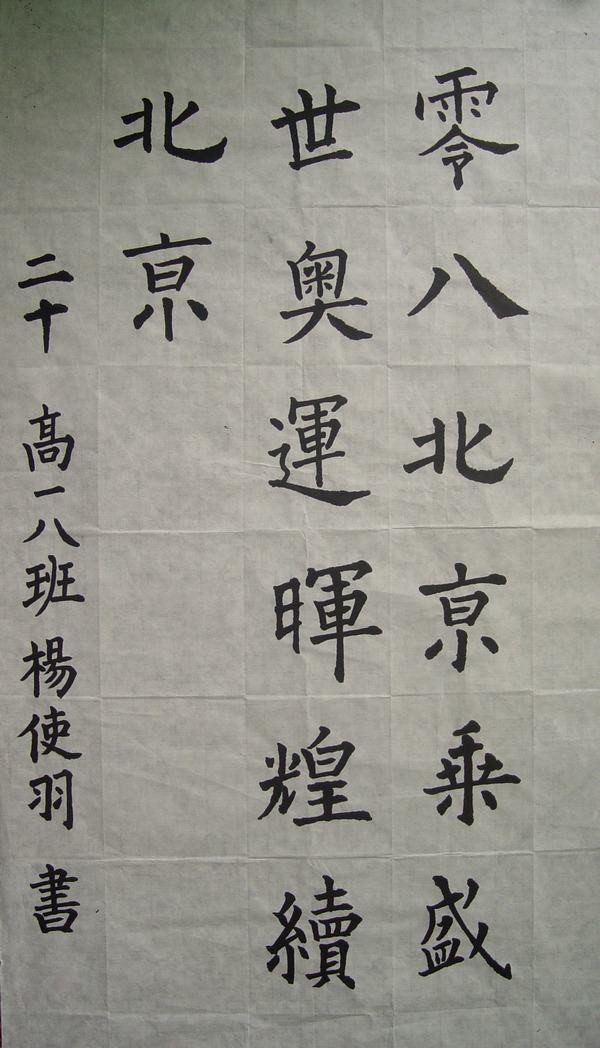 零八北京乗盛
世奥運暉煌續
北京
二十 高一八班 楊使羽 書